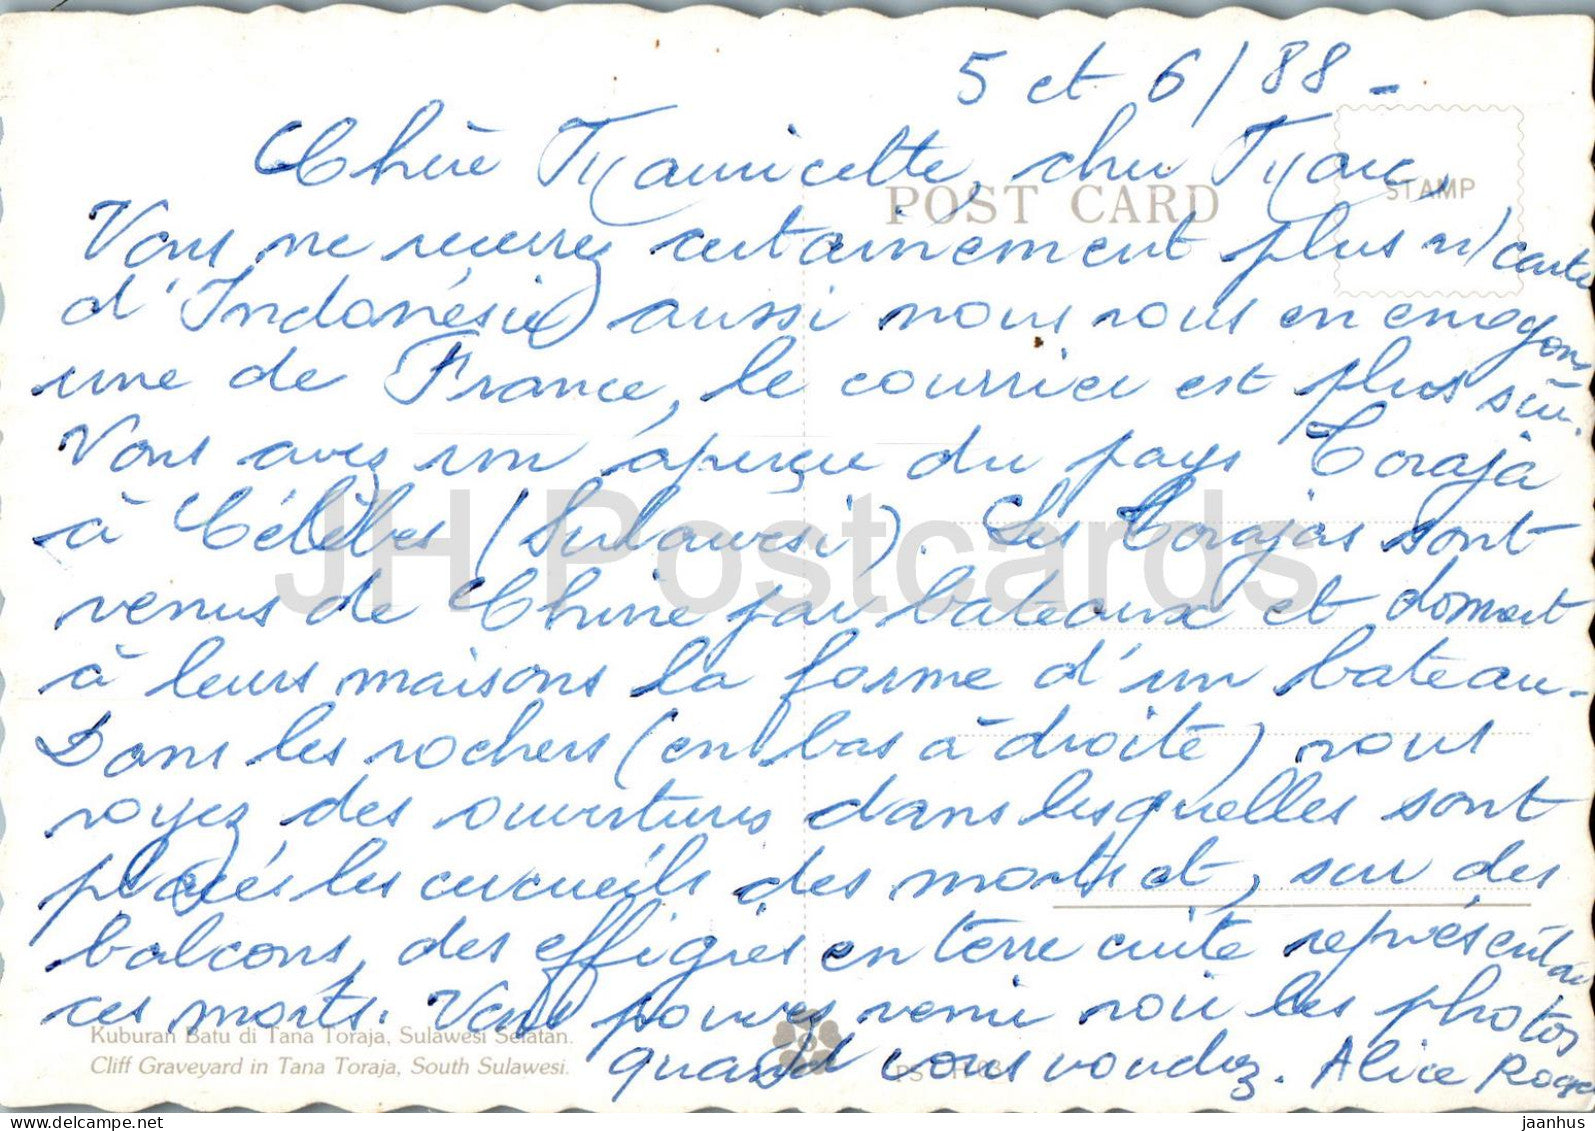 5 et 6/88 -
Chère Mauricette, cher Marc,
POST CARD
STAMP
Vous ne recevrez certainement plus n/ carte
d'Indonésie, aussi nous vous en envoyons
une de France, le courrier est plus sûr.
Vous avez un aperçu du pays Toraja
à Célèbes (Sulawesi). Les Torajas sont
venus de Chine par bateaux et donnent
à leurs maisons la forme d'un bateau.
Dans les rochers (en bas à droite) vous
voyez des ouvertures dans lesquelles sont
placés les cercueils des morts et, sur des
balcons, des effigies en terre cuite représentant
ces morts. Vous pouvez venir voir les photos
quand vous voudrez. Alice Roger
Kuburan Batu di Tana Toraja, Sulawesi Selatan.
Cliff Graveyard in Tana Toraja, South Sulawesi.
JH Postcards
jaanhus